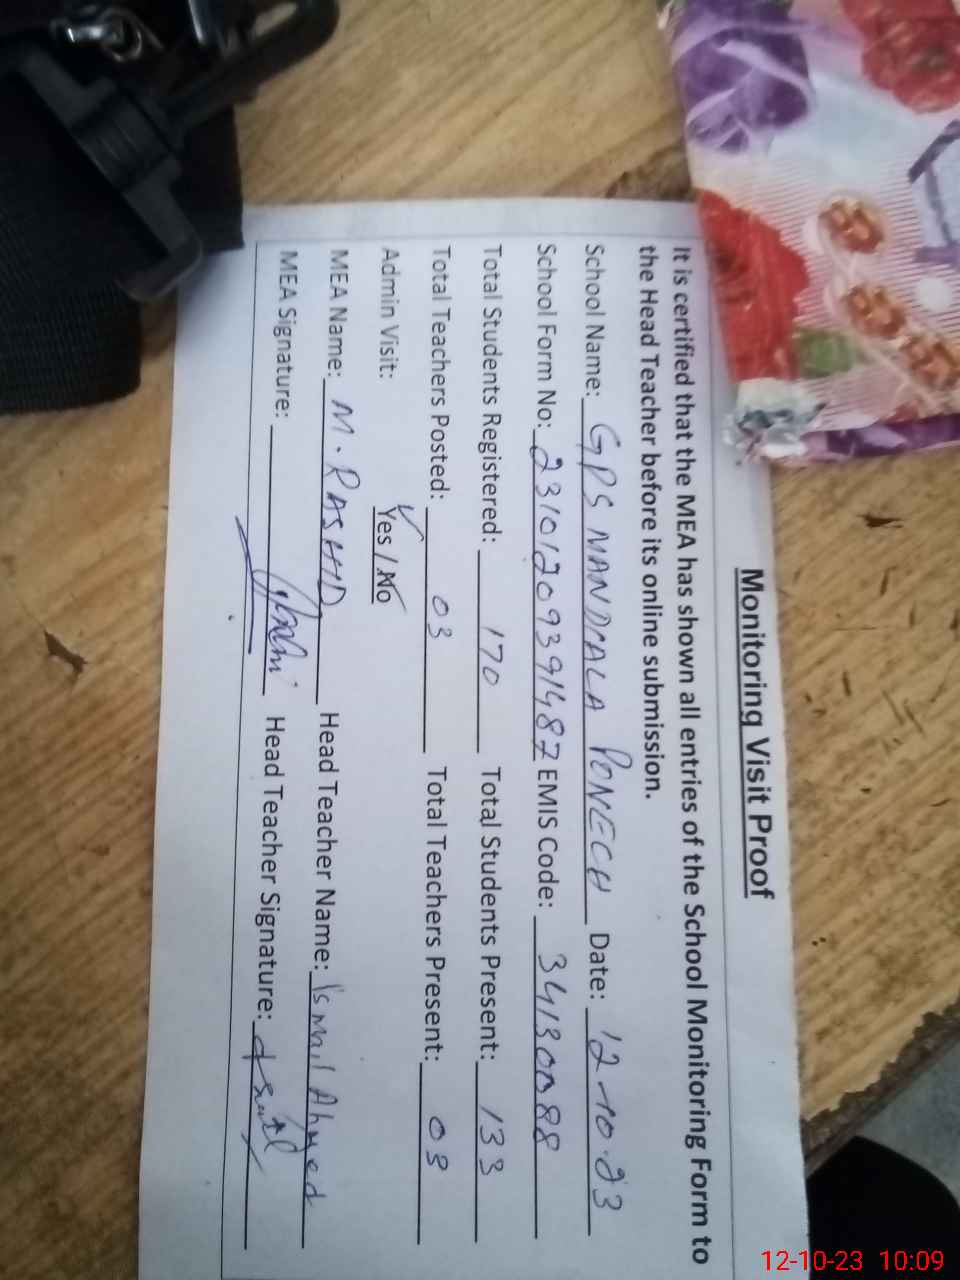 Monitoring Visit Proof
It is certified that the MEA has shown all entries of the School Monitoring Form to
the Head Teacher before its online submission.
School Name: GPS MANDRALA PONECH Date: 12-10-23
School Form No: 23101209391487 EMIS Code: 34130088
Total Students Registered: 170 Total Students Present: 133
Total Teachers Posted: 03 Total Teachers Present: 03
Admin Visit: Yes / No
MEA Name: M. RASHID Head Teacher Name: Ismail Ahmed
MEA Signature: Head Teacher Signature:
12-10-23 10:09